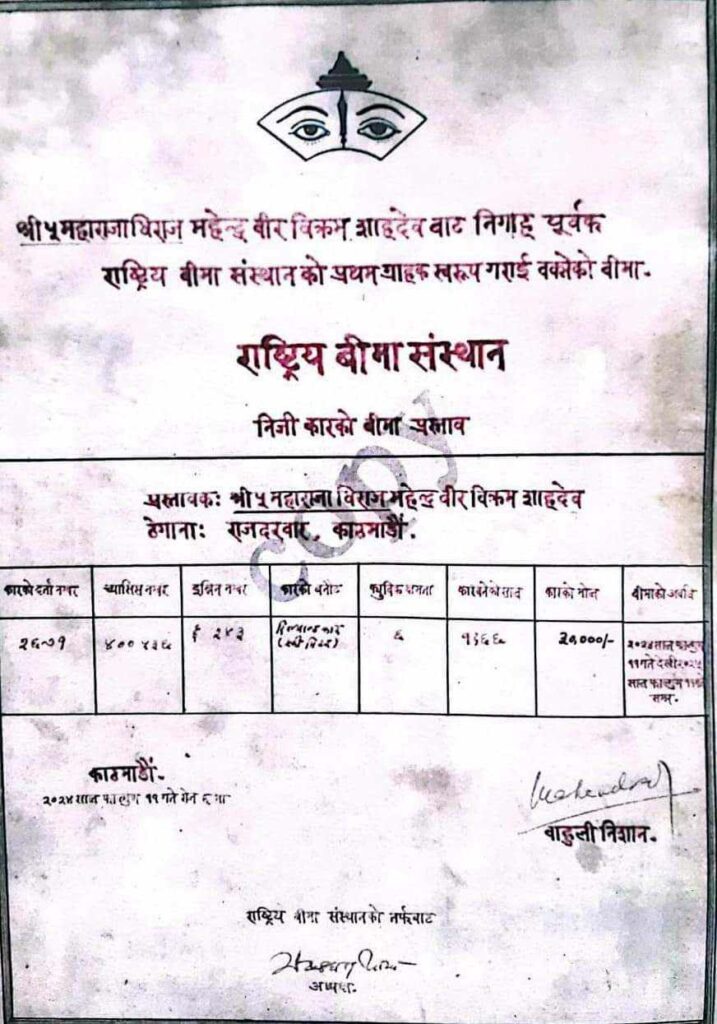 श्री ५ महाराजाधिराज महेन्द्र वीर विक्रम शाहदेव वाट निगाह पूर्वक
राष्ट्रिय बीमा संस्थानको प्रथम ग्राहक स्वरुप गराई वक्सेको बीमा.
राष्ट्रिय बीमा संस्थान
निजी कारको बीमा प्रस्ताव
copy
प्रस्तावक: श्री ५ महाराजाधिराज महेन्द्र वीर विक्रम शाहदेव
ठेगाना: राजदरवार, काठमाडौं.
कारको दर्ता नम्बर च्यासिस नम्बर इन्जिन नम्बर कारको बनोट क्युविक क्षमता कारको मोल बीमाको अवधि
४०० ४३६ २४३ ६ १९६६ २०,०००/-
२०२४ साल फाल्गुण
११ गते देखी २०२५
साल फाल्गुण
सम्म.
काठमाडौं.
२०२४ साल फाल्गुण ११ गते रोज
Mahendra
बाहुली निशान.
राष्ट्रिय बीमा संस्थानको तर्फबाट
अध्यक्ष.